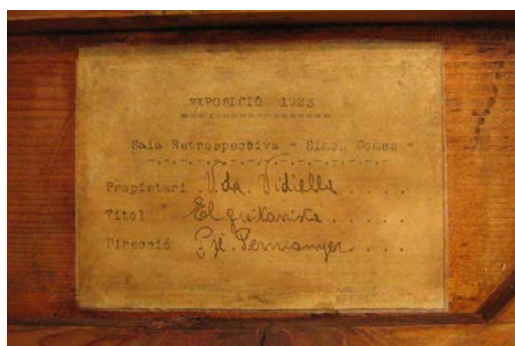 EXPOSICIÓ 1923
Sala Retrospectiva = Simon Gomez =
Propietari . Vda. Vidiella . . . .
Titol El guitarrista . . . . .
Direcció Pje. Permanyer . . . .